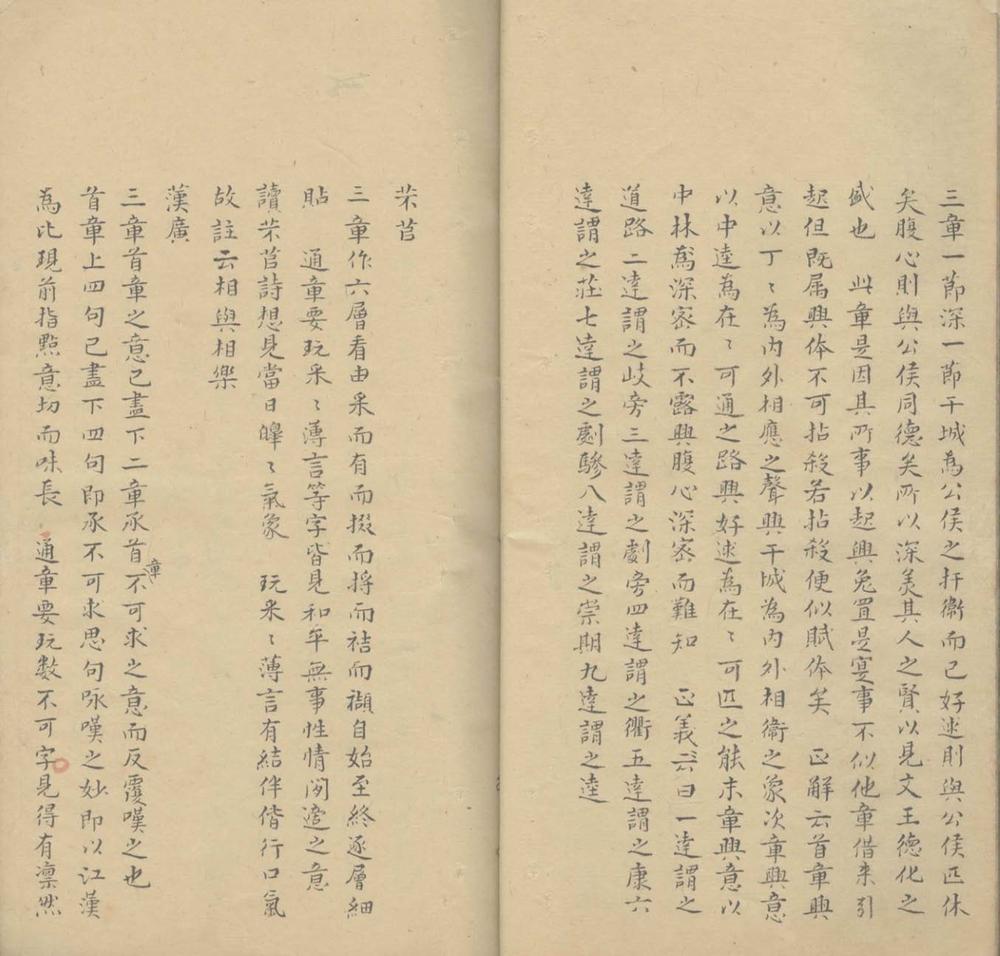 三章一節深一節干城為公侯之扞衞而已好逑則與公侯匹休
矣腹心則與公侯同德矣所以深美其人之賢以見文王德化之
盛也　此章是因其所事以起興兔罝是寔事不似他章借来引
起但既属興体不可拈殺若拈殺便似賦体矣　正解云首章興
意以丁〻為内外相應之聲興干城為内外相衞之象次章興意
以中逵為在〻可通之路興好逑為在〻可匹之能末章興意以
中林為深密而不露興腹心深密而難知　正義云曰一達謂之
道路二達謂之岐旁三達謂之劇旁四達謂之衢五達謂之康六
達謂之莊七達謂之劇驂八達謂之崇期九達謂之逵
芣苢
三章作六層看由采而有而掇而捋而袺而襭自始至終逐層細
貼　通章要玩采〻薄言等字皆見和平無事性情閑適之意
讀芣苢詩想見當日皞〻氣象　玩采〻薄言有結伴偕行口氣
故註云相與相樂
漢廣
三章首章之意已盡下二章承首章不可求之意而反覆嘆之也
首章上四句已盡下四句即承不可求思句咏嘆之妙即以江漢
為比現前指點意切而味長　通章要玩数不可字見得有凛然